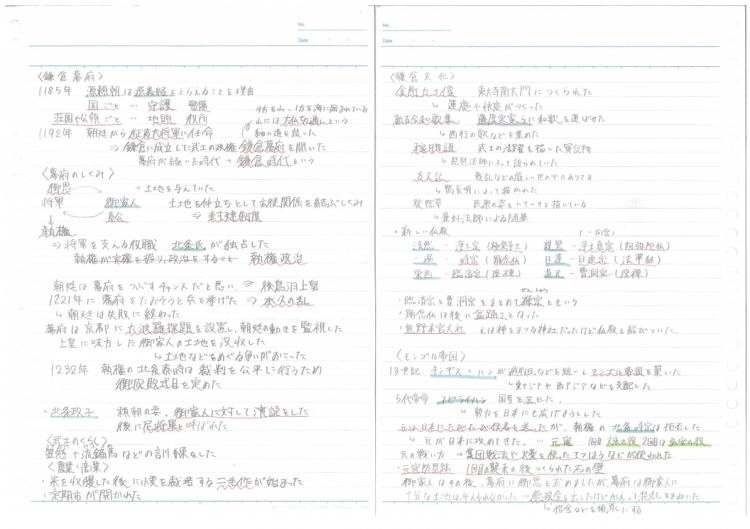 No.
Date
〈鎌倉幕府〉
1185年 源頼朝は源義経をとらえることを理由
国ごと … 守護 警備
荘園や公領ごと … 地頭 役所
3方を山、1方を海に囲まれている
山には切通しという
細い道を使った
1192年 朝廷から征夷大将軍に任命
⇒ 鎌倉に成立した武士の政権 鎌倉幕府を開いた
幕府が続いた時代 → 鎌倉時代という
〈幕府のしくみ〉
御恩 → 土地を与えていた
将軍 御家人 土地を仲立ちとして主従関係を結ぶしくみ
奉公 ⇒ 封建制度
執権
⇒ 将軍を支える役職 北条氏が独占した
執権が実権を握り、政治をする 執権政治
朝廷は幕府をつぶすチャンスだと思い、⇒ 後鳥羽上皇
1221年に幕府をたおそうと兵を挙げた ⇒ 承久の乱
↳ 朝廷は失敗に終わった
幕府は京都に六波羅探題を設置し、朝廷の動きを監視した
上皇に味方した御家人の土地を没収した
↳ 土地などをめぐる争いがおこった
1232年 執権の北条泰時は裁判を公平に行うため
御成敗式目を定めた
・北条政子 頼朝の妻。御家人に対して演説をした
後に尼将軍と呼ばれた
〈武士のくらし〉
笠懸や流鏑馬などの訓練をした
〈農業・商業〉
・米を収穫した後に麦を栽培する二毛作が始まった
・定期市が開かれた
No.
Date
〈鎌倉文化〉
金剛力士像 東大寺南大門につくられた
↳ 運慶や快慶がつくった
新古今和歌集 藤原定家らに和歌を選ばせた
↳ 西行の歌などを集めた
軍記物語 武士の活躍を描いた軍記物
↳ 琵琶法師によって語られていた
方丈記 戦乱などの厳しい世の中のありさま
↳ 鴨長明によって描かれた
徒然草 民衆の姿をいきいきと描いている
↳ 兼好法師による随筆
・新しい仏教
法然 - 浄土宗 (極楽浄土) 親鸞 - 浄土真宗 (阿弥陀仏)
一遍 - 時宗 (踊念仏) 日蓮 - 日蓮宗 (法華経)
栄西 - 臨済宗 (座禅) 道元 - 曹洞宗 (座禅)
ぜんしゅう
・臨済宗と曹洞宗をまとめて禅宗という
・踊念仏は後に盆踊りとなった
・熊野本宮大社 元は神をまつる神社だったけど仏教と結びついた。
〈モンゴル帝国〉
13世紀 チンギス・ハンが遊牧民などを統一しモンゴル帝国を築いた
↳ 東アジアや西アジアなどを支配した
5代皇帝 フビライ・ハン 国号を元とした。
↳ 勢力を日本にも広げようとした
元は日本にしたがえと使者を送ったが、執権の北条時宗は拒否した
↳ 元が日本に攻めてきた。… 元寇 1回目 文永の役 2回目 弘安の役
元の戦い方 → 集団戦法や火薬を使ったてつはうなどが使われた
・元寇防塁跡 1回目の襲来の後つくられた石の壁
御家人はその後、幕府に御恩を求めましたが、幕府は御家人に
十分な土地は与えられなかった → 徳政令を出したけど
↳ 借金などを帳消しにする